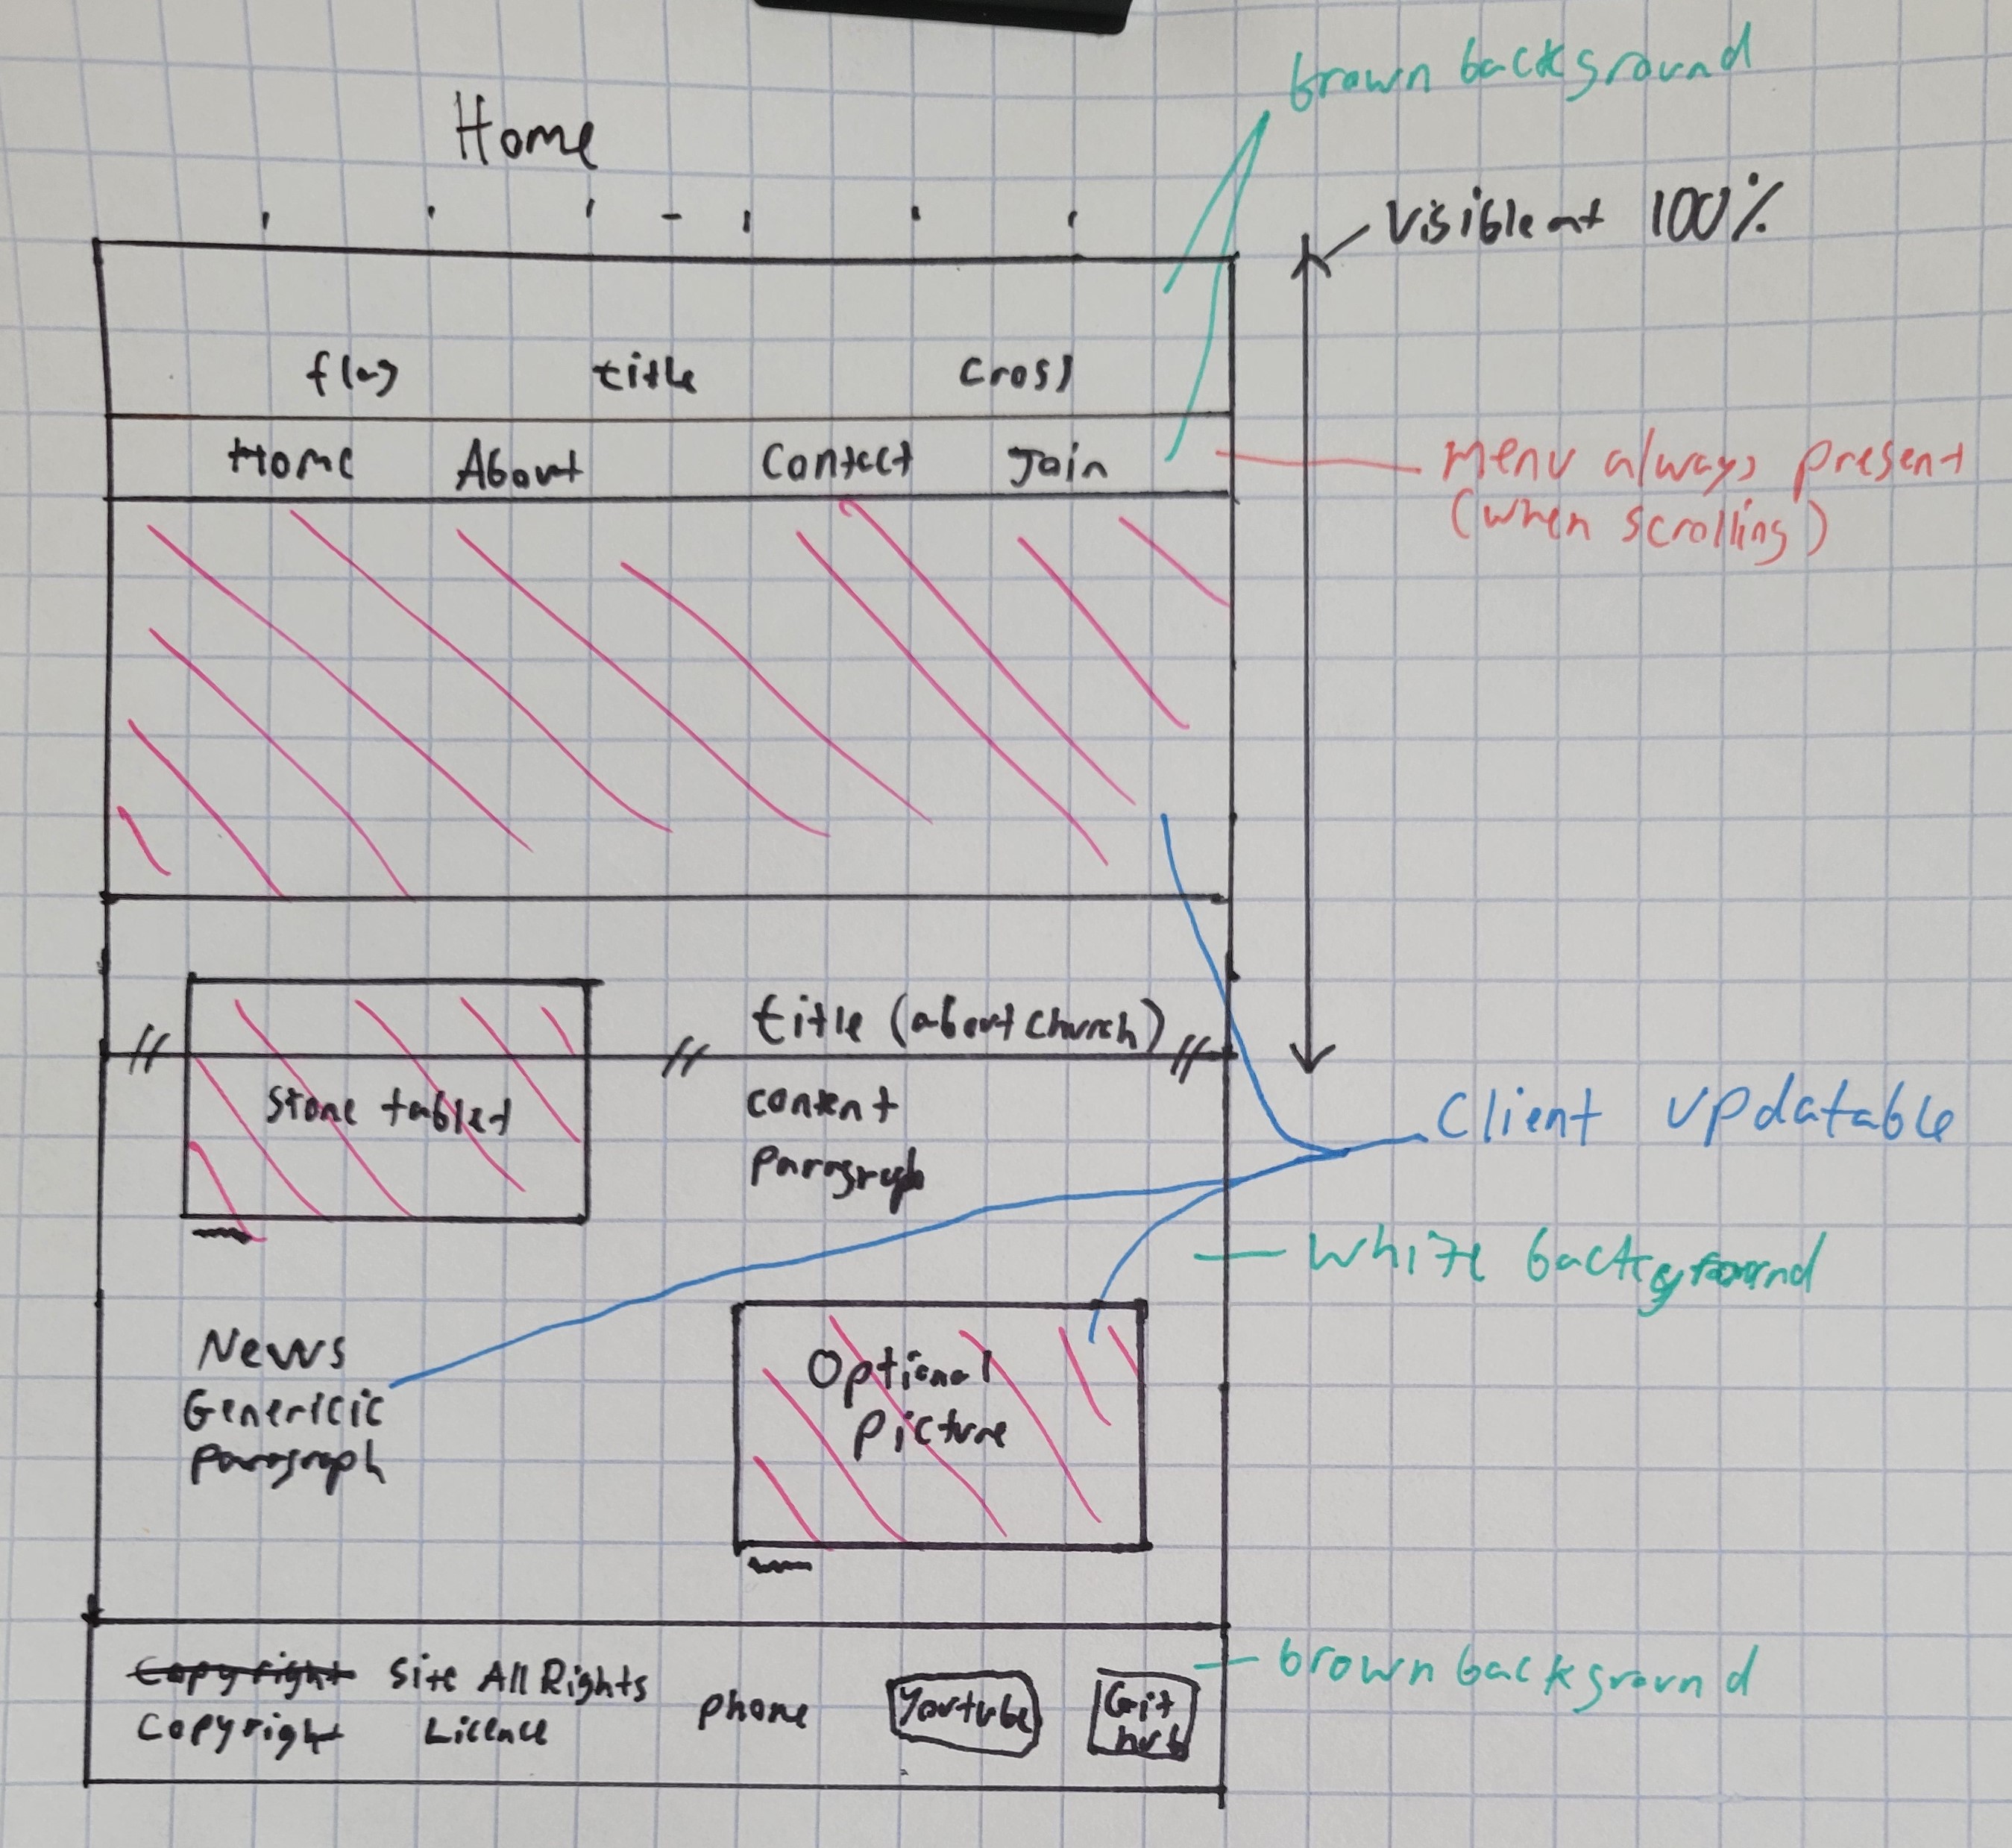 brown background
Home
Visible at 100%
flag title cross
Home About Contact Join
Menu always present
(when scrolling)
title (about church)
stone tablet
content
paragraph
Client updatable
White background
News
Genericic
paragraph
Optional
picture
brown background
Copyright Site All Rights
Copyright Licence
phone
Youtube
Git
hub